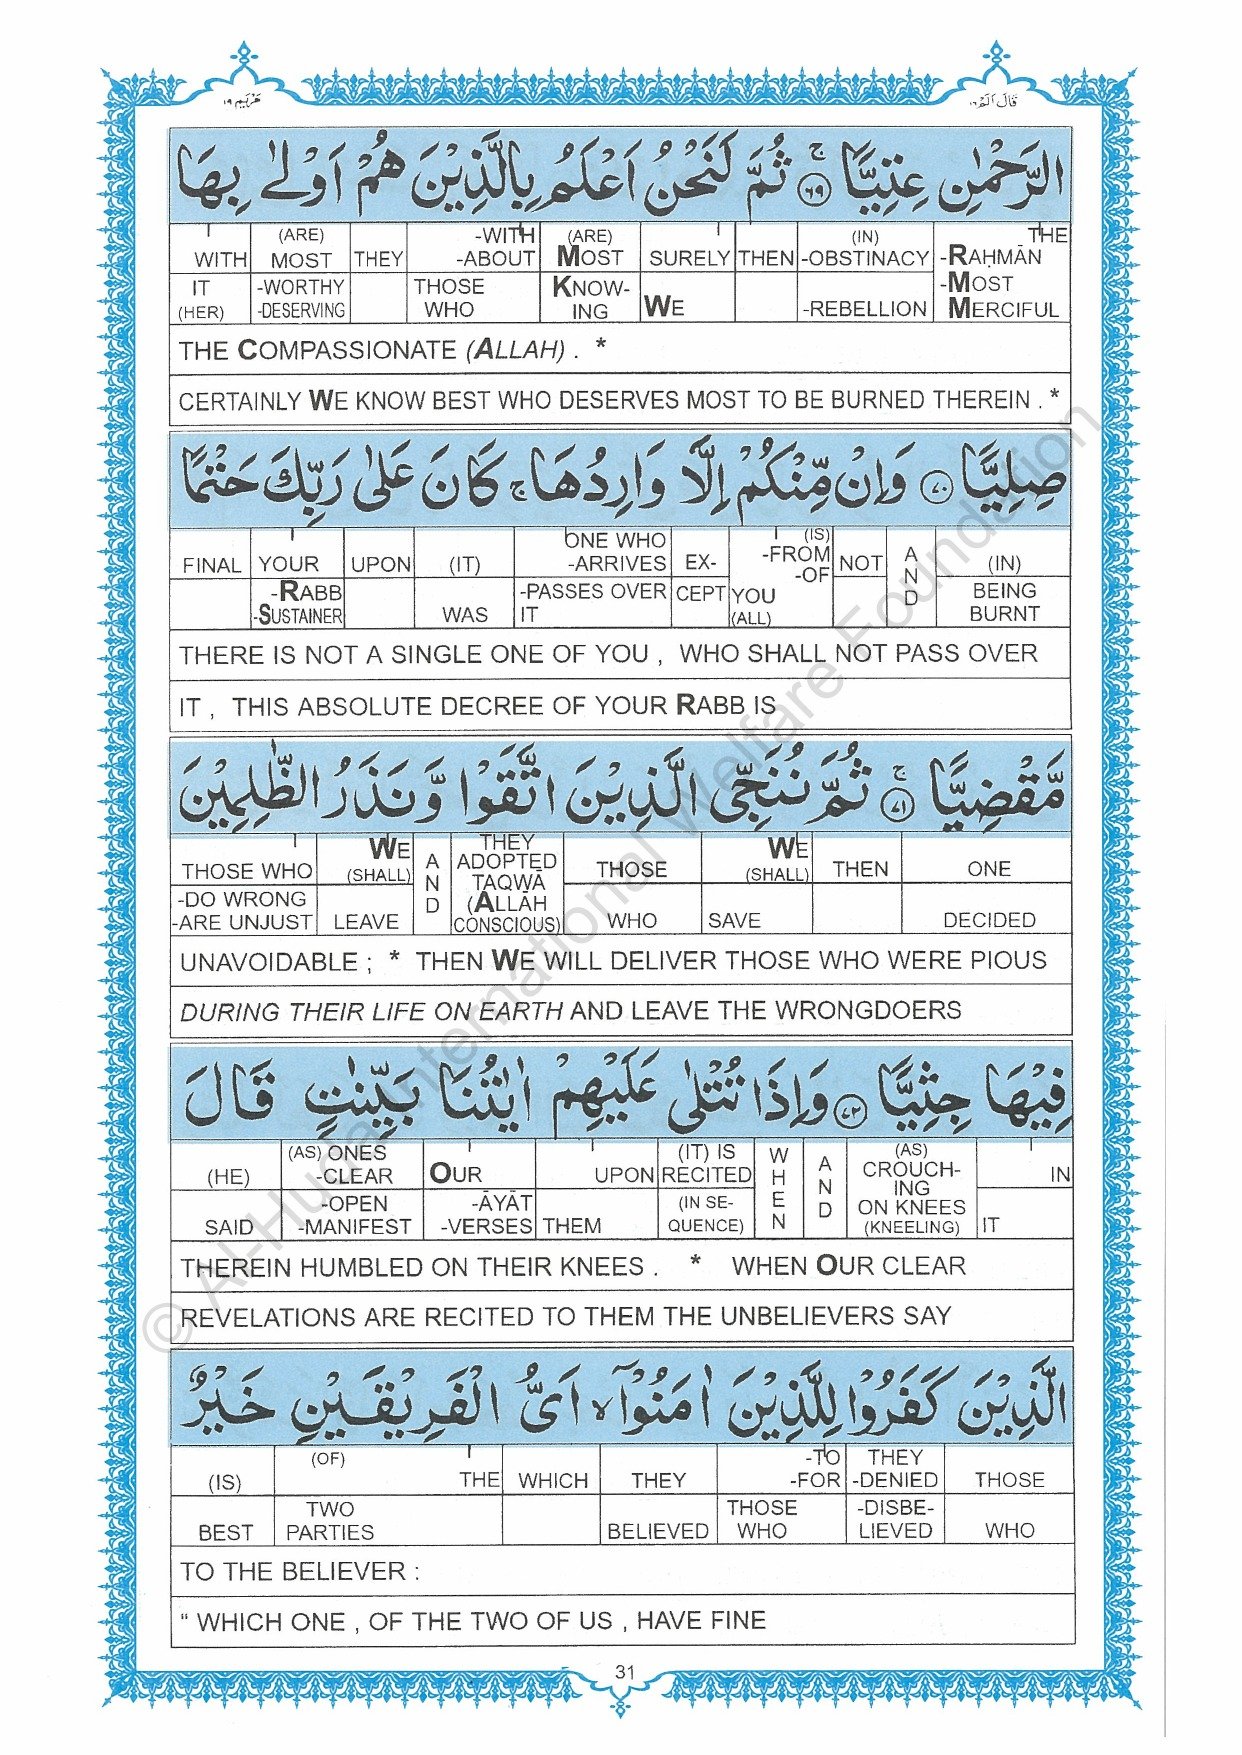 مَرْيَم ١٩
قَالَ اَلَمْ ١٦
الرَّحْمٰنِ عِتِيًّا ۚ ﴿٦٩﴾ ثُمَّ لَنَحْنُ اَعْلَمُ بِالَّذِيْنَ هُمْ اَوْلٰى بِهَا
WITH (ARE) MOST THEY -WITH -ABOUT (ARE) MOST SURELY THEN (IN) -OBSTINACY THE -RAḤMĀN
IT (HER) -WORTHY -DESERVING THOSE WHO KNOW-ING WE -REBELLION -MOST MERCIFUL
THE COMPASSIONATE (ALLAH) . *
CERTAINLY WE KNOW BEST WHO DESERVES MOST TO BE BURNED THEREIN . *
صِلِيًّا ﴿٧٠﴾ وَاِنْ مِّنْكُمْ اِلَّا وَارِدُهَا ۚ كَانَ عَلٰى رَبِّكَ حَتْمًا
FINAL YOUR UPON (IT) ONE WHO -ARRIVES EX- (IS) -FROM -OF NOT AND (IN)
-RABB -SUSTAINER WAS -PASSES OVER IT CEPT YOU (ALL) BEING BURNT
THERE IS NOT A SINGLE ONE OF YOU , WHO SHALL NOT PASS OVER
IT , THIS ABSOLUTE DECREE OF YOUR RABB IS
مَّقْضِيًّا ۚ ﴿٧١﴾ ثُمَّ نُنَجِّى الَّذِيْنَ اتَّقَوْا وَّنَذَرُ الظّٰلِمِيْنَ
THOSE WHO WE (SHALL) AND THEY ADOPTED TAQWĀ (ALLĀH CONSCIOUS) THOSE WE (SHALL) THEN ONE
-DO WRONG -ARE UNJUST LEAVE WHO SAVE DECIDED
UNAVOIDABLE ; * THEN WE WILL DELIVER THOSE WHO WERE PIOUS
DURING THEIR LIFE ON EARTH AND LEAVE THE WRONGDOERS
فِيْهَا جِثِيًّا ﴿٧٢﴾ وَاِذَا تُتْلٰى عَلَيْهِمْ اٰيٰتُنَا بَيِّنٰتٍ قَالَ
(HE) (AS) ONES -CLEAR OUR UPON (IT) IS RECITED WHEN AND (AS) CROUCH-ING ON KNEES (KNEELING) IN
SAID -OPEN -MANIFEST -ĀYĀT -VERSES THEM (IN SE-QUENCE) IT
THEREIN HUMBLED ON THEIR KNEES . * WHEN OUR CLEAR
REVELATIONS ARE RECITED TO THEM THE UNBELIEVERS SAY
الَّذِيْنَ كَفَرُوْا لِلَّذِيْنَ اٰمَنُوْٓا ۙ اَىُّ الْفَرِيْقَيْنِ خَيْرٌ
(IS) (OF) THE WHICH THEY -TO -FOR THEY -DENIED THOSE
BEST TWO PARTIES BELIEVED THOSE WHO -DISBE-LIEVED WHO
TO THE BELIEVER :
" WHICH ONE , OF THE TWO OF US , HAVE FINE
31
© Al-Huda International Welfare Foundation